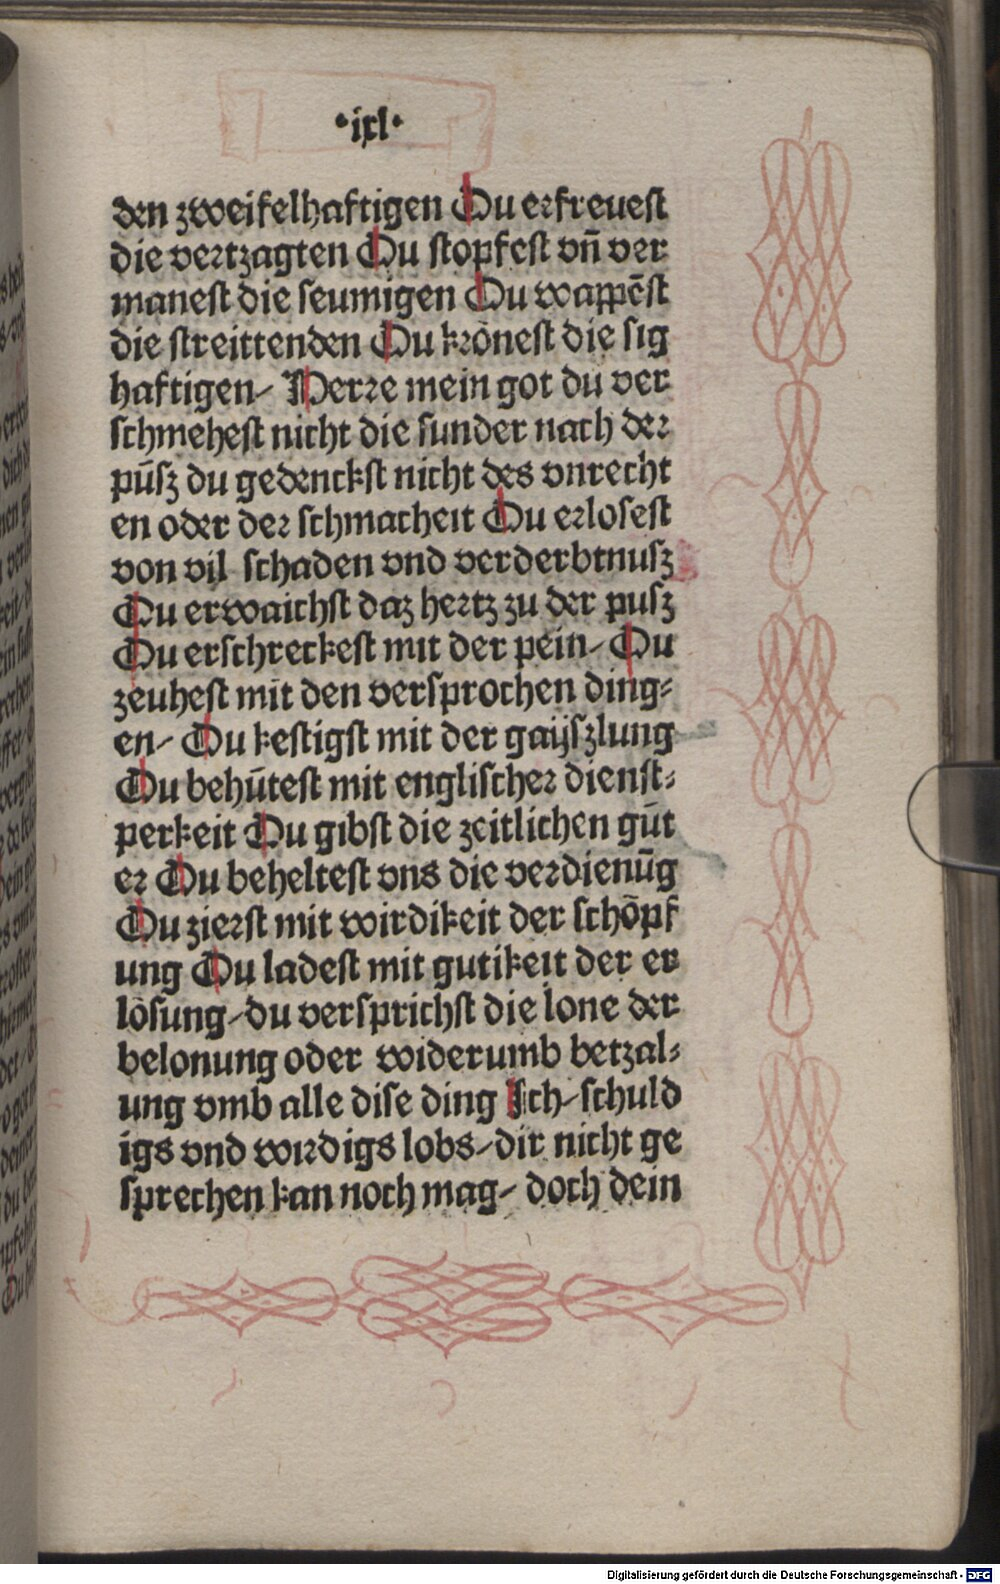 ·ixl·
den zweifelhaftigen Du erfreuest
die vertzagten Du stopfest vn̄ ver
manest die seumigen Du wappēst
die streittenden Du krönest die sig
haftigen⸗ Herre mein got du ver
schmehest nicht die sunder nach der
pūsz du gedenckst nicht des vnrecht
en oder der schmacheit Du erlosest
von vil schaden vnd verderbtnusz
Du erwaichst daz hertz zu der pusz
Du erschreckest mit der pein⸗ Du
zeuhest mit den versprochen ding⸗
en⸗ Du kestigst mit der gaijszlung
Du behūtest mit englischer dienst⸗
perkeit Du gibst die zeitlichen gūt
er Du beheltest vns die verdienūg
Du zierst mit wirdikeit der schöpf
ung Du ladest mit gutikeit der er
lösung⸗du versprichst die lone der
belonung oder widerumb betzal⸗
ung vmb alle dise ding Ich⸗schuld
igs vnd wirdigs lobs⸗dir nicht ge
sprechen kan noch mag⸗ doch dein
Digitalisierung gefördert durch die Deutsche Forschungsgemeinschaft - DFG